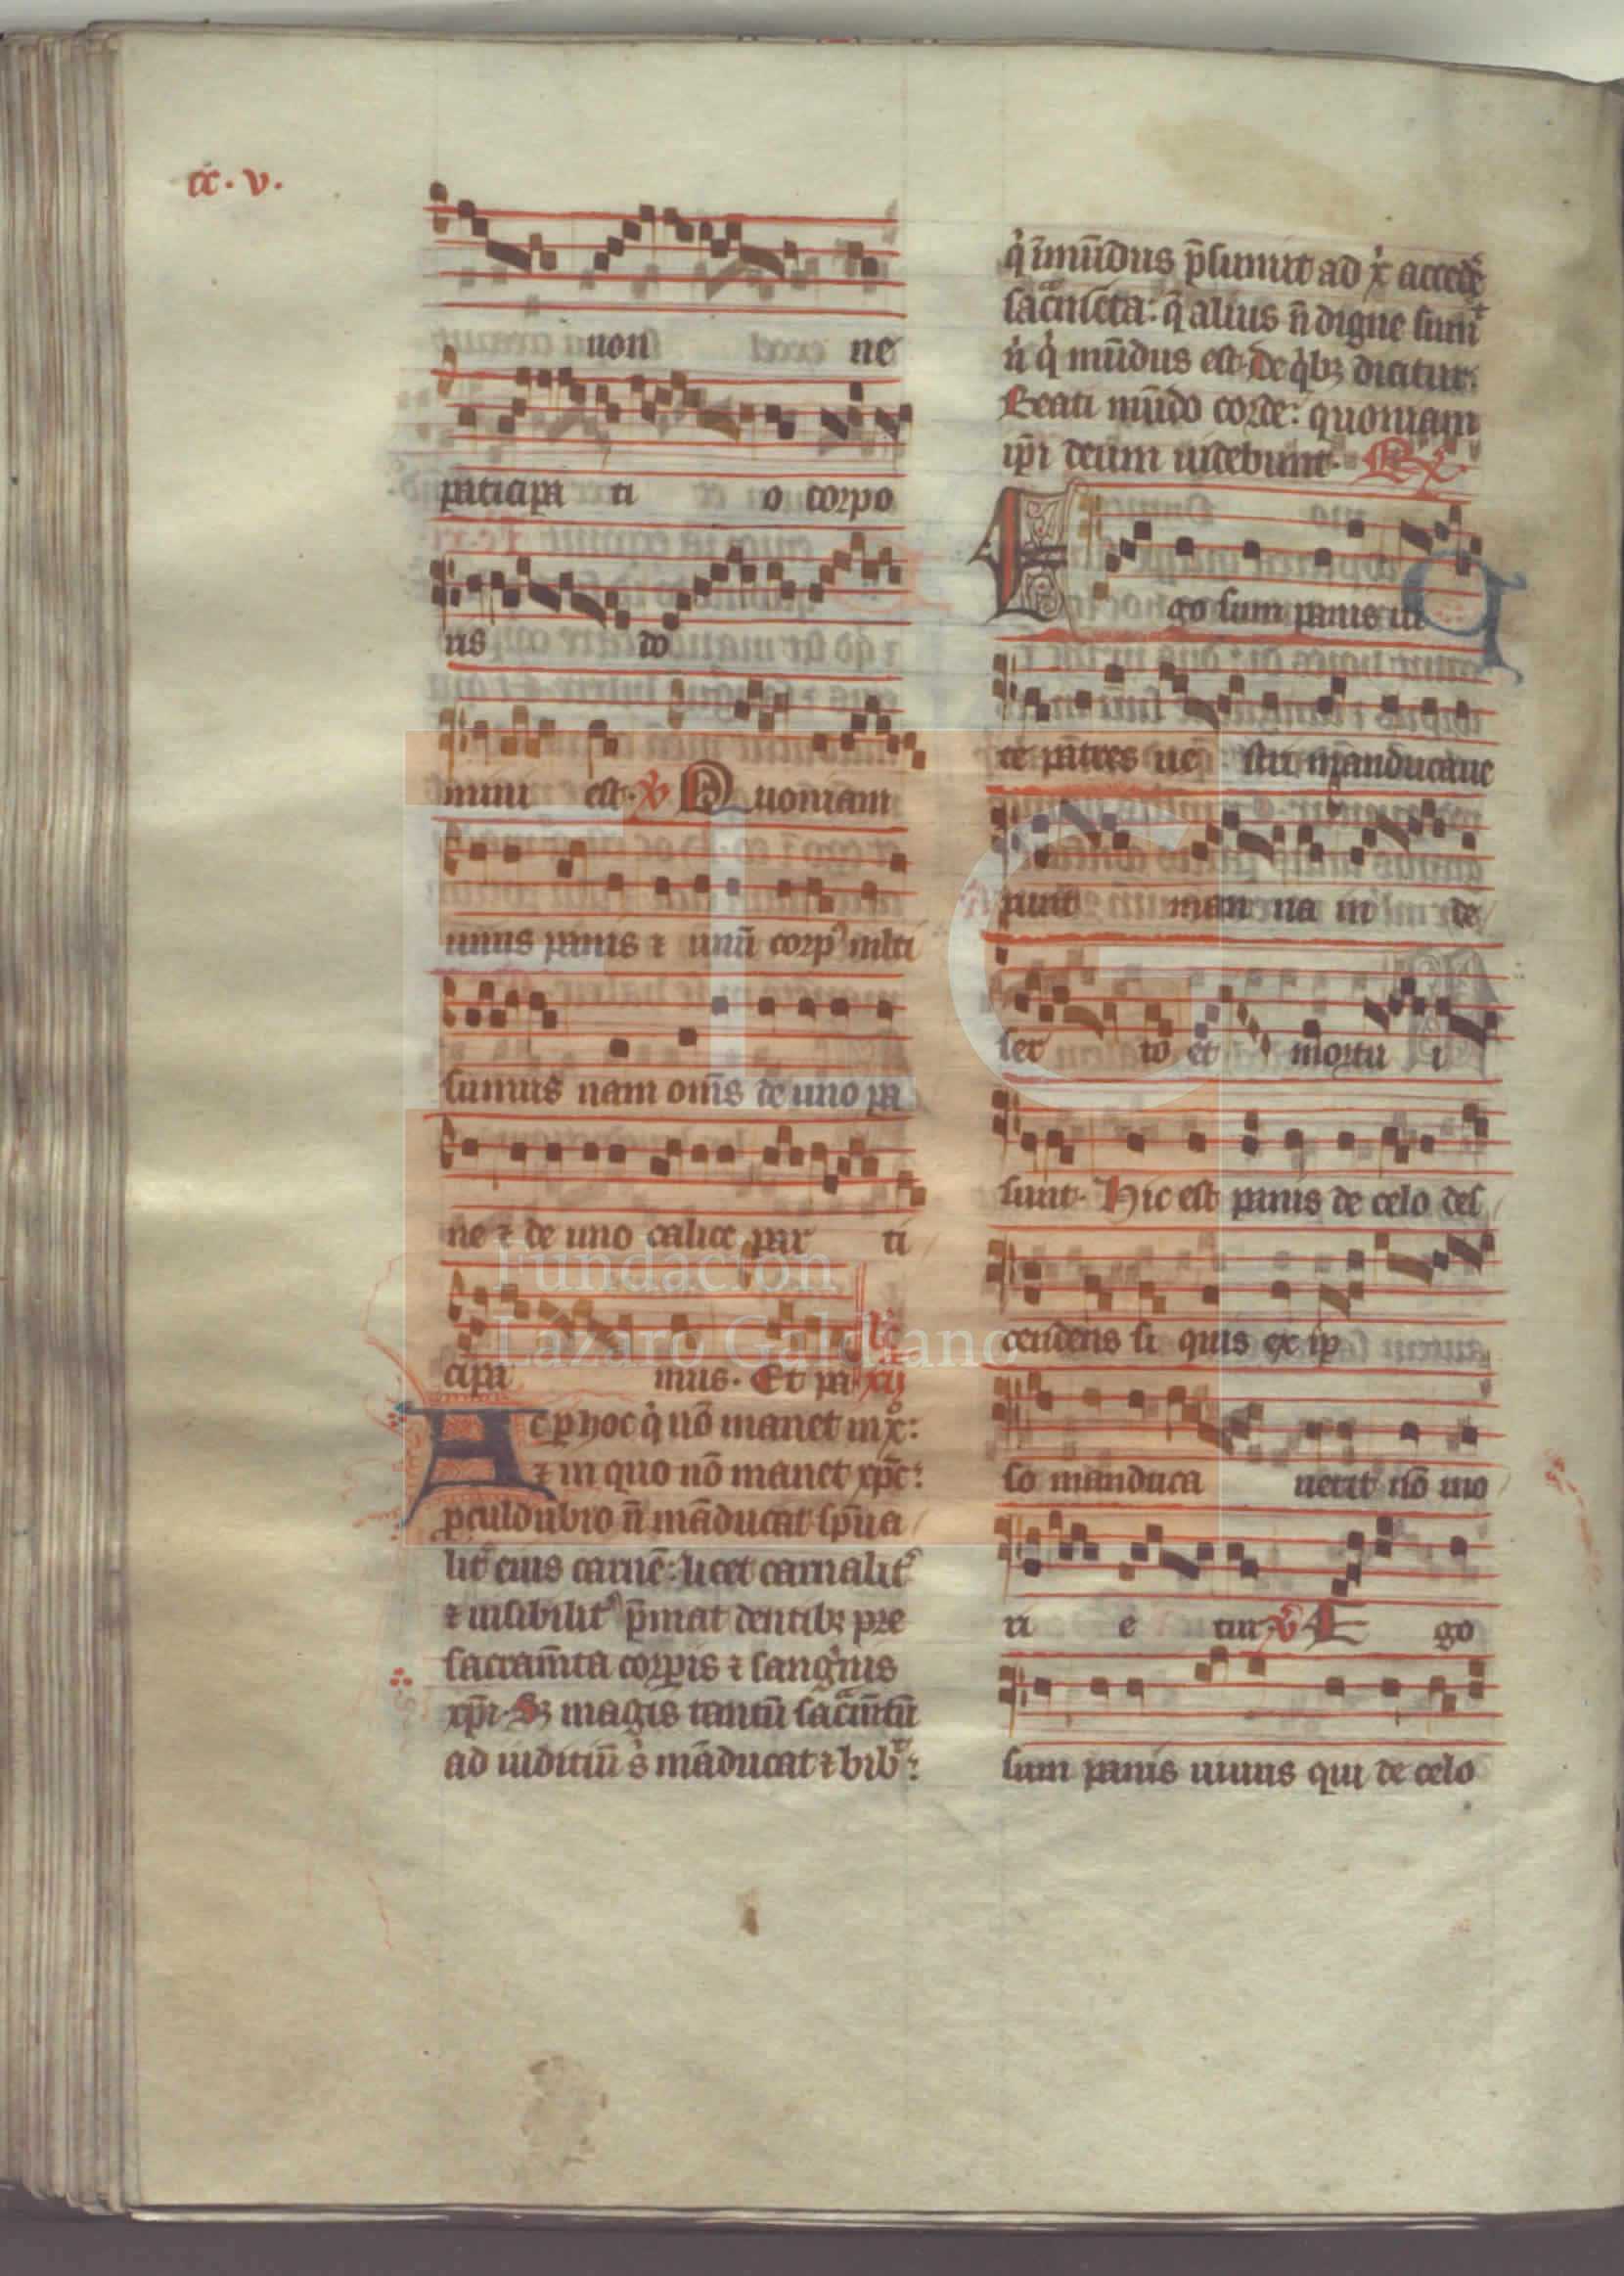 cc. v.
non ne
paticipa ti o corpo
ris do
mini est. V Quoniam
unus panis ⁊ unū corpꝰ mlti
sumus nam om̄s de uno pa
ne ⁊ de uno calice par ti
cipa mus. Et pa
Ac ꝑ hoc q̇ nō manet in x̄:
⁊ in quo nō manet xp̄c:
ꝓculdubio n̄ māducat sp̄ua
lit̄ eius carnē: licet carnalit̄
⁊ uisibilit̄ p̄mat dentibꝫ pre
sacram̄ta corꝑis ⁊ sangīnis
xp̄i. Sꝫ magis tantū sac̄m̄tū
ad iuditiū s̄ māducat ⁊ bib̄:
q̇ īmūdus p̄sumit ad x̄ acced̄e
sac̄m̄sc̄ta: q̄ alius n̄ digne sum̄t
n̄ q̇ mūdus est. De q̇bꝫ dicitur.
Beati mūdo corde: quoniam
ip̄i deum uidebunt. Rx
Ego sum panis ui
te pātres ue stri manducaue
runt man na in de
ser to et mortu i
sunt. Hic est panis de celo des
cendens si quis ex ip
so manduca uerit nō mo
ri e tur. V Ego
sum panis uiuus qui de celo
FLG
Fundación
Lázaro Galdiano